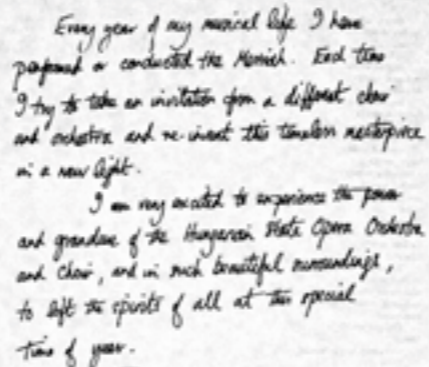 Every year of my musical life I have
performed or conducted the Messiah. Each time
I try to take an invitation from a different choir
and orchestra and re-invent this timeless masterpiece
in a new light.
I am very excited to experience the power
and grandeur of the Hungarian State Opera Orchestra
and Choir, and in such beautiful surroundings,
to lift the spirits of all at this special
time of year.